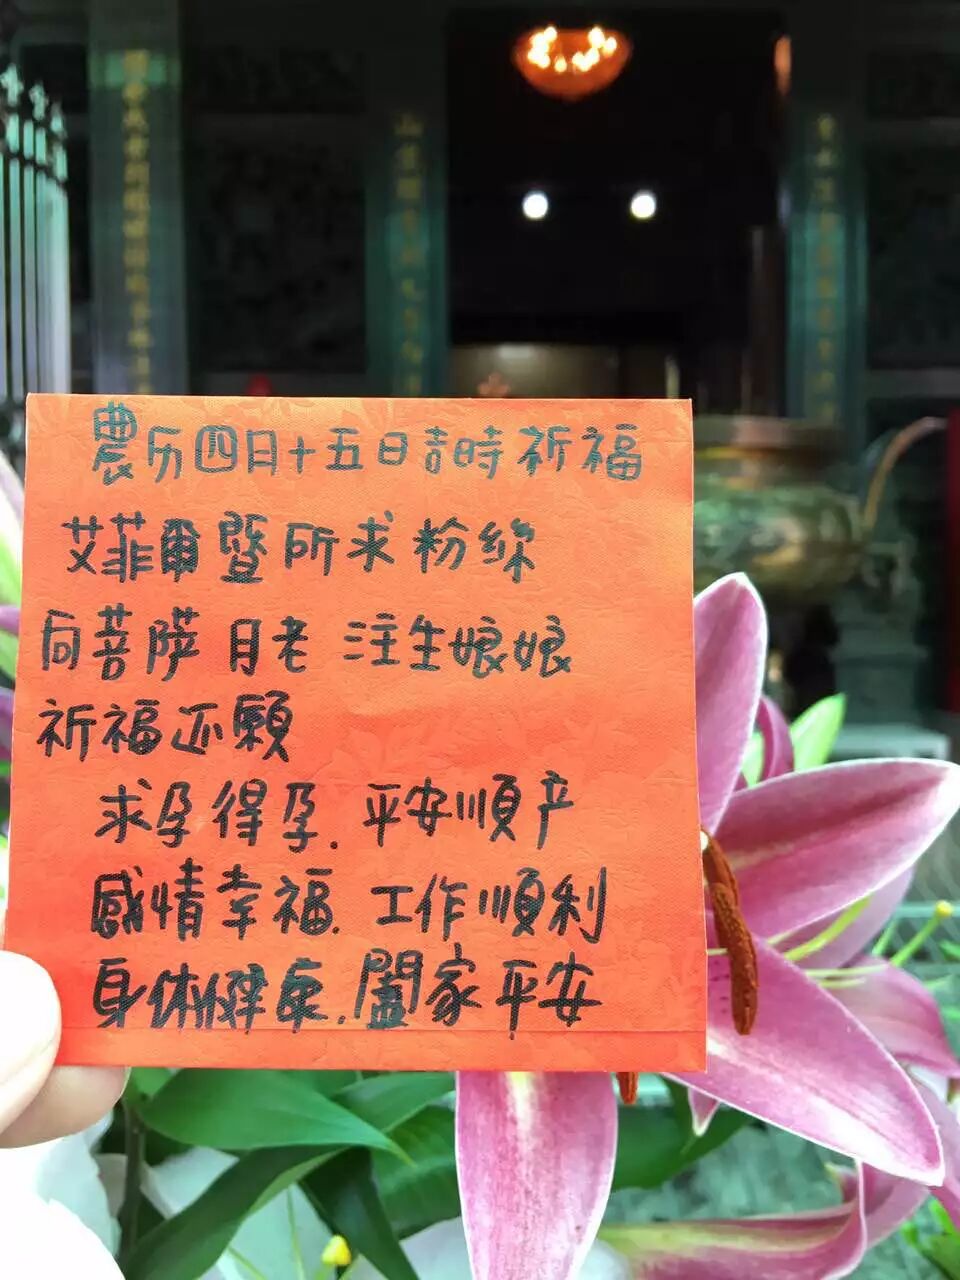 農历四月十五日吉時祈福
艾菲爾暨所求粉丝
向菩薩 月老 注生娘娘
祈福还願
求孕得孕.平安順产
感情幸福.工作順利
身体健康.闔家平安